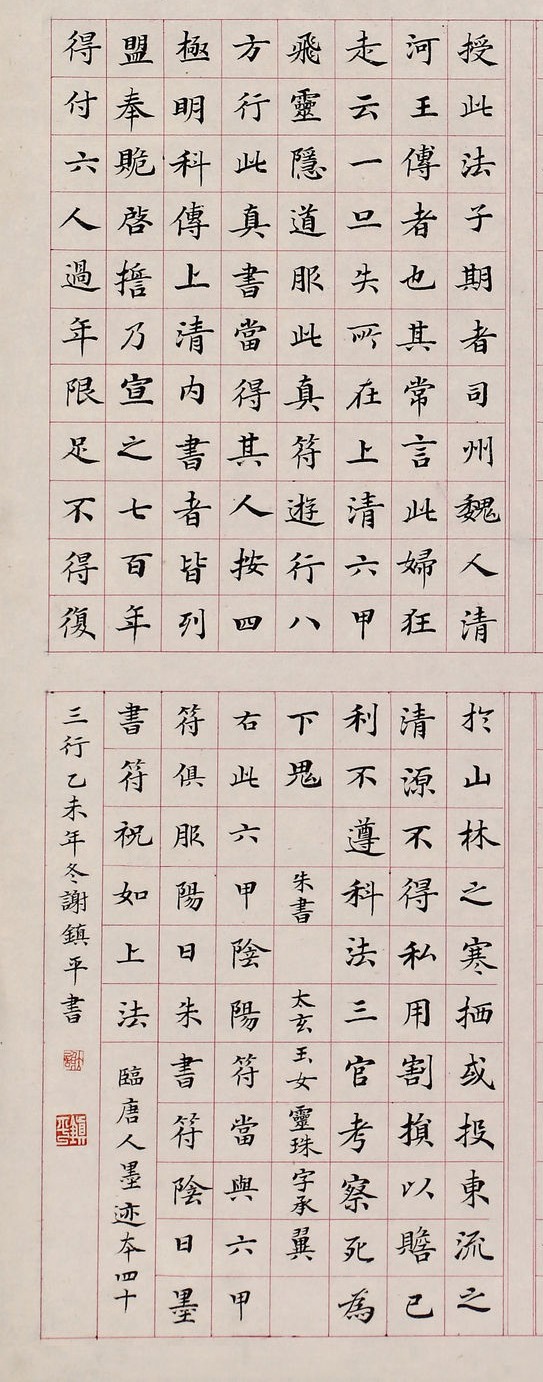 授此法子期者司州魏人清
河王傳者也其常言此婦狂
走云一旦失所在上清六甲
飛靈隱道服此真符遊行八
方行此真書當得其人按四
極明科傳上清內書者皆列
盟奉贶啓擔乃宣之七百年
得付六人過年限足不得復
於山林之寒栖或投東流之
清源不得私用割損以贍已
利不遵科法三官考察死為
下鬼 朱書 太玄玉女靈珠字承翼
右此六甲陰陽符當與六甲
符俱服陽日朱書符陰日墨
書符祝如上法 臨唐人墨迹本四十
三行乙未年冬謝鎮平書